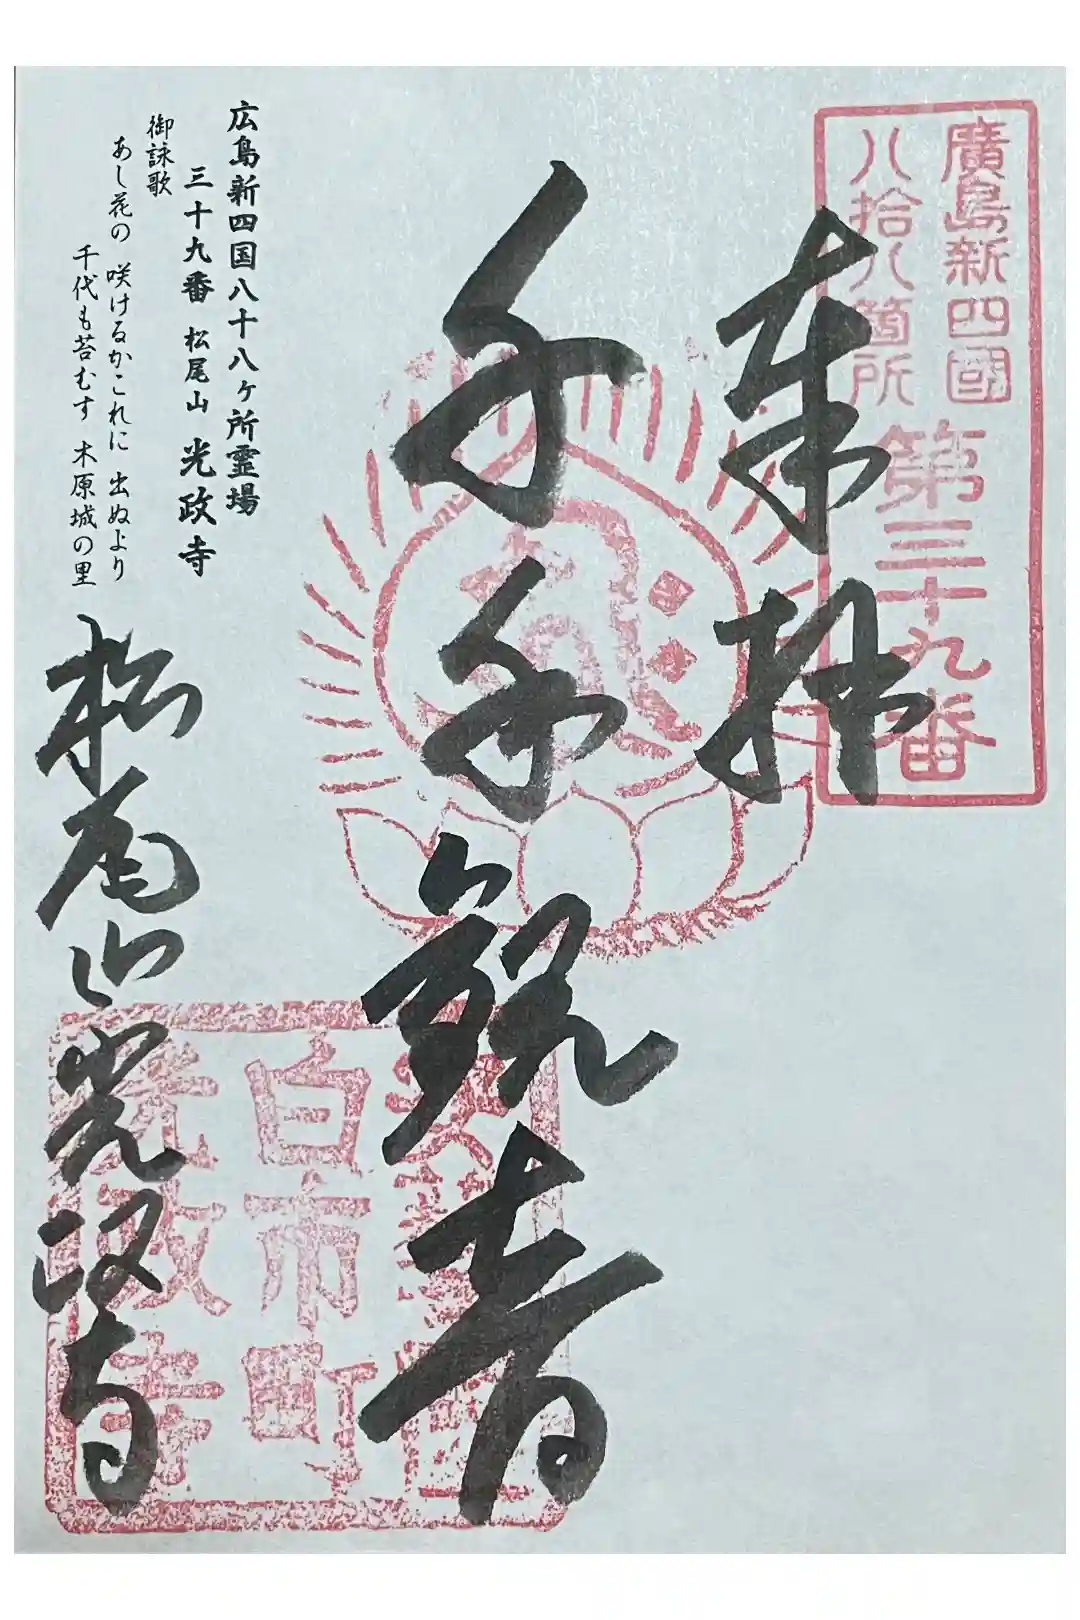 廣島新四國
八拾八箇所
第三十九番
奉拝
千手観音
広島新四国八十八ヶ所霊場
三十九番 松尾山 光政寺
御詠歌
あし花の 咲けるかこれに 出ぬより
千代も苔むす 木原城の里
松尾山光政寺
白市町
光政寺